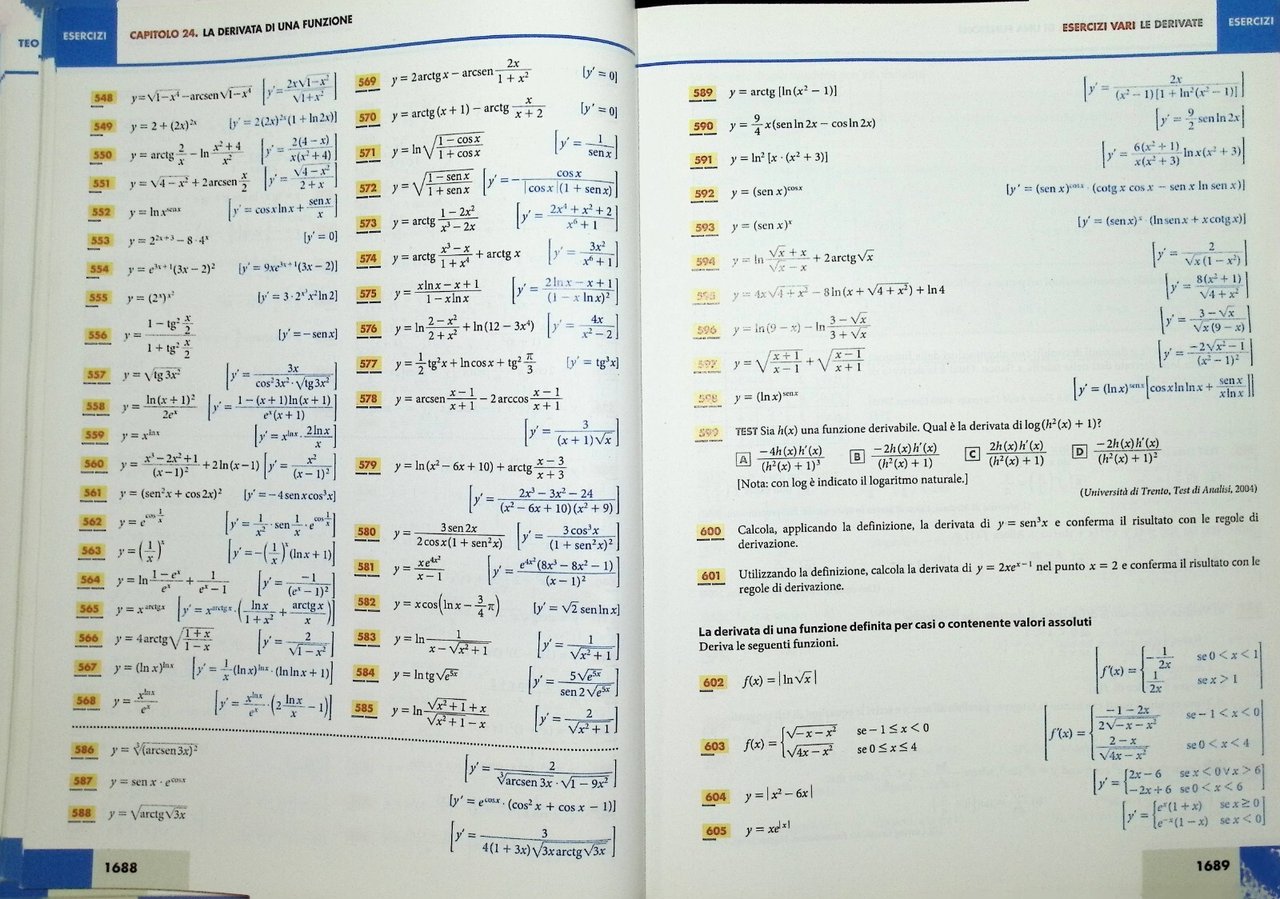 TEO
ESERCIZI
CAPITOLO 24. LA DERIVATA DI UNA FUNZIONE
548 y=√(1−x⁴)−arcsen√(1−x⁴) [y'= 2x√(1−x²)/√(1+x²)]
549 y = 2 + (2x)²ˣ [y' = 2(2x)²ˣ(1 + ln2x)]
550 y = arctg 2/x − ln (x²+4)/x² [y' = 2(4−x)/(x(x²+4))]
551 y = √(4−x²) + 2arcsen x/2 [y' = √(4−x²)/(2+x)]
552 y = lnx^(senx) [y' = cosxlnx + senx/x]
553 y = 2^(2x+3) − 8·4ˣ [y' = 0]
554 y = e^(3x+1)(3x−2)² [y' = 9xe^(3x+1)(3x−2)]
555 y = (2ˣ)^(x²) [y' = 3·2^(x³)x²ln2]
556 y = (1−tg² x/2)/(1+tg² x/2) [y' = −senx]
557 y = √(tg3x²) [y' = 3x/(cos²3x²·√(tg3x²))]
558 y = ln(x+1)²/(2eˣ) [y' = (1−(x+1)ln(x+1))/(eˣ(x+1))]
559 y = x^(lnx) [y' = x^(lnx)· 2lnx/x]
560 y = (x³−2x²+1)/(x−1)² + 2ln(x−1) [y' = x²/(x−1)²]
561 y = (sen²x + cos2x)² [y' = −4senxcos³x]
562 y = e^(cos 1/x) [y' = 1/x²·sen 1/x·e^(cos 1/x)]
563 y = (1/x)ˣ [y' = −(1/x)ˣ(lnx+1)]
564 y = ln (1−eˣ)/eˣ + 1/(eˣ−1) [y' = −1/(eˣ−1)²]
565 y = x^(arctgx) [y' = x^(arctgx)·(lnx/(1+x²) + arctgx/x)]
566 y = 4arctg√((1+x)/(1−x)) [y' = 2/√(1−x²)]
567 y = (lnx)^(lnx) [y' = 1/x·(lnx)^(lnx)·(lnlnx+1)]
568 y = x^(lnx)/eˣ [y' = x^(lnx)/eˣ·(2 lnx/x − 1)]
569 y = 2arctgx − arcsen 2x/(1+x²) [y' = 0]
570 y = arctg(x+1) − arctg x/(x+2) [y' = 0]
571 y = ln√((1−cosx)/(1+cosx)) [y' = 1/senx]
572 y = √((1−senx)/(1+senx)) [y' = − cosx/(|cosx|(1+senx))]
573 y = arctg (1−2x²)/(x³−2x) [y' = (2x⁴+x²+2)/(x⁶+1)]
574 y = arctg (x³−x)/(1+x⁴) + arctgx [y' = 3x²/(x⁶+1)]
575 y = (xlnx−x+1)/(1−xlnx) [y' = (2lnx−x+1)/(1−xlnx)²]
576 y = ln (2−x²)/(2+x²) + ln(12−3x⁴) [y' = 4x/(x²−2)]
577 y = 1/2 tg²x + lncosx + tg² π/3 [y' = tg³x]
578 y = arcsen (x−1)/(x+1) − 2arccos (x−1)/(x+1)
[y' = 3/((x+1)√x)]
579 y = ln(x²−6x+10) + arctg (x−3)/(x+3)
[y' = (2x³−3x²−24)/((x²−6x+10)(x²+9))]
580 y = 3sen2x/(2cosx(1+sen²x)) [y' = 3cos³x/(1+sen²x)²]
581 y = xe^(4x²)/(x−1) [y' = e^(4x²)(8x³−8x²−1)/(x−1)²]
582 y = xcos(lnx − 3/4 π) [y' = √2 senlnx]
583 y = ln 1/(x−√(x²+1)) [y' = 1/√(x²+1)]
584 y = lntg√(e⁵ˣ) [y' = 5√(e⁵ˣ)/(sen2√(e⁵ˣ))]
585 y = ln (√(x²+1)+x)/(√(x²+1)−x) [y' = 2/√(x²+1)]
586 y = ∛((arcsen3x)²) [y' = 2/(∛(arcsen3x)·√(1−9x²))]
587 y = senx·e^(cosx) [y' = e^(cosx)·(cos²x + cosx − 1)]
588 y = √(arctg√(3x)) [y' = 3/(4(1+3x)√(3xarctg√(3x)))]
1688
ESERCIZI VARI LE DERIVATE
ESERCIZI
589 y = arctg [ln(x²−1)] [y' = 2x/((x²−1)[1+ln²(x²−1)])]
590 y = 9/4 x(senln2x − cosln2x) [y' = 9/2 senln2x]
591 y = ln² [x·(x²+3)] [y' = 6(x²+1)/(x(x²+3)) lnx(x²+3)]
592 y = (senx)^(cosx) [y' = (senx)^(cosx)·(cotgx cosx − senx lnsenx)]
593 y = (senx)ˣ [y' = (senx)ˣ·(lnsenx + xcotgx)]
594 y = ln (√x+x)/(√x−x) + 2arctg√x [y' = 2/(√x(1−x²))]
595 y = 4x√(4+x²) − 8ln(x+√(4+x²)) + ln4 [y' = 8(x²+1)/√(4+x²)]
596 y = ln(9−x) − ln (3−√x)/(3+√x) [y' = (3−√x)/(√x(9−x))]
597 y = √((x+1)/(x−1)) + √((x−1)/(x+1)) [y' = −2√(x²−1)/(x²−1)²]
598 y = (lnx)^(senx) [y' = (lnx)^(senx)[cosxlnlnx + senx/(xlnx)]]
599 TEST Sia h(x) una funzione derivabile. Qual è la derivata di log(h²(x) + 1)?
A −4h(x)h'(x)/(h²(x)+1)³ B −2h(x)h'(x)/(h²(x)+1) C 2h(x)h'(x)/(h²(x)+1) D −2h(x)h'(x)/(h²(x)+1)²
[Nota: con log è indicato il logaritmo naturale.]
(Università di Trento, Test di Analisi, 2004)
600 Calcola, applicando la definizione, la derivata di y = sen³x e conferma il risultato con le regole di
derivazione.
601 Utilizzando la definizione, calcola la derivata di y = 2xe^(x−1) nel punto x = 2 e conferma il risultato con le
regole di derivazione.
La derivata di una funzione definita per casi o contenente valori assoluti
Deriva le seguenti funzioni.
602 f(x) = |ln√x| [f'(x) = {−1/2x se 0 < x < 1; 1/2x se x > 1]
603 f(x) = {√(−x−x²) se −1 ≤ x < 0; √(4x−x²) se 0 ≤ x ≤ 4 [f'(x) = {(−1−2x)/(2√(−x−x²)) se −1 < x < 0; (2−x)/√(4x−x²) se 0 < x < 4]
604 y = |x²−6x| [y' = {2x−6 se x < 0 ∨ x > 6; −2x+6 se 0 < x < 6]
605 y = xe^|x| [y' = {eˣ(1+x) se x ≥ 0; e⁻ˣ(1−x) se x < 0]
1689